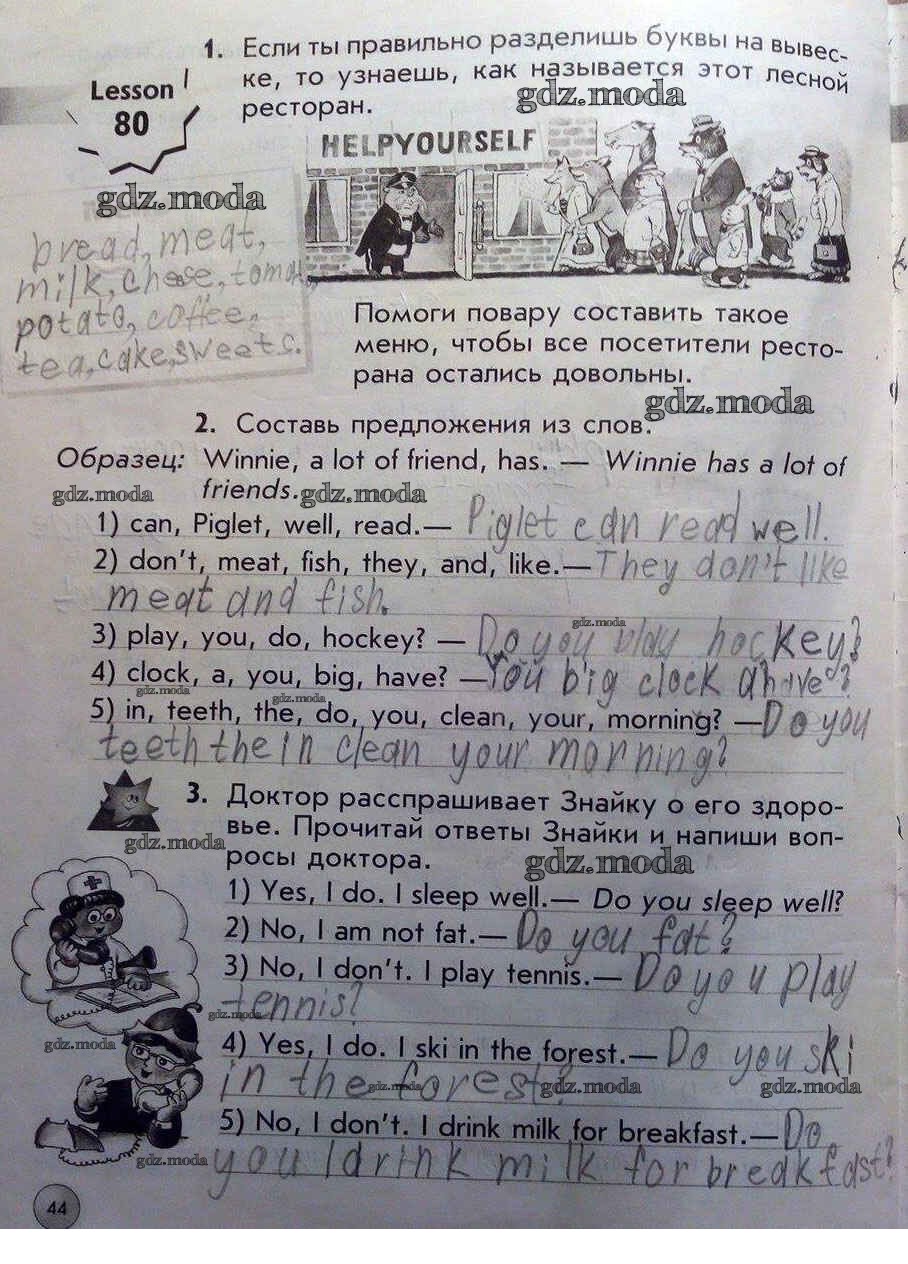 Lesson
80
1. Если ты правильно разделишь буквы на вывес-
ке, то узнаешь, как называется этот лесной
ресторан.
gdz.moda
HELPYOURSELF
gdz.moda
bread, meat,
milk, chesse, tomat,
potato, coffee,
tea, cake, sweets.
Помоги повару составить такое
меню, чтобы все посетители ресто-
рана остались довольны.
gdz.moda
2. Составь предложения из слов.
Образец: Winnie, a lot of friend, has. — Winnie has a lot of
friends.
gdz.moda
gdz.moda
1) can, Piglet, well, read.— Piglet can read well.
2) don't, meat, fish, they, and, like.— They don't like
meat and fish.
gdz.moda
3) play, you, do, hockey? — Do you play hockey?
4) clock, a, you, big, have? — You big clock a have?
gdz.moda
gdz.moda
5) in, teeth, the, do, you, clean, your, morning? — Do you
teeth the in clean your morning?
3. Доктор расспрашивает Знайку о его здоро-
вье. Прочитай ответы Знайки и напиши воп-
росы доктора.
gdz.moda
gdz.moda
1) Yes, I do. I sleep well.— Do you sleep well?
2) No, I am not fat.— Do you fat?
3) No, I don't. I play tennis.— Do you play
tennis?
gdz.moda
gdz.moda
4) Yes, I do. I ski in the forest.— Do you ski
in the forest?
gdz.moda
gdz.moda
gdz.moda
5) No, I don't. I drink milk for breakfast.— Do
you I drink milk for breakfast?
gdz.moda
44